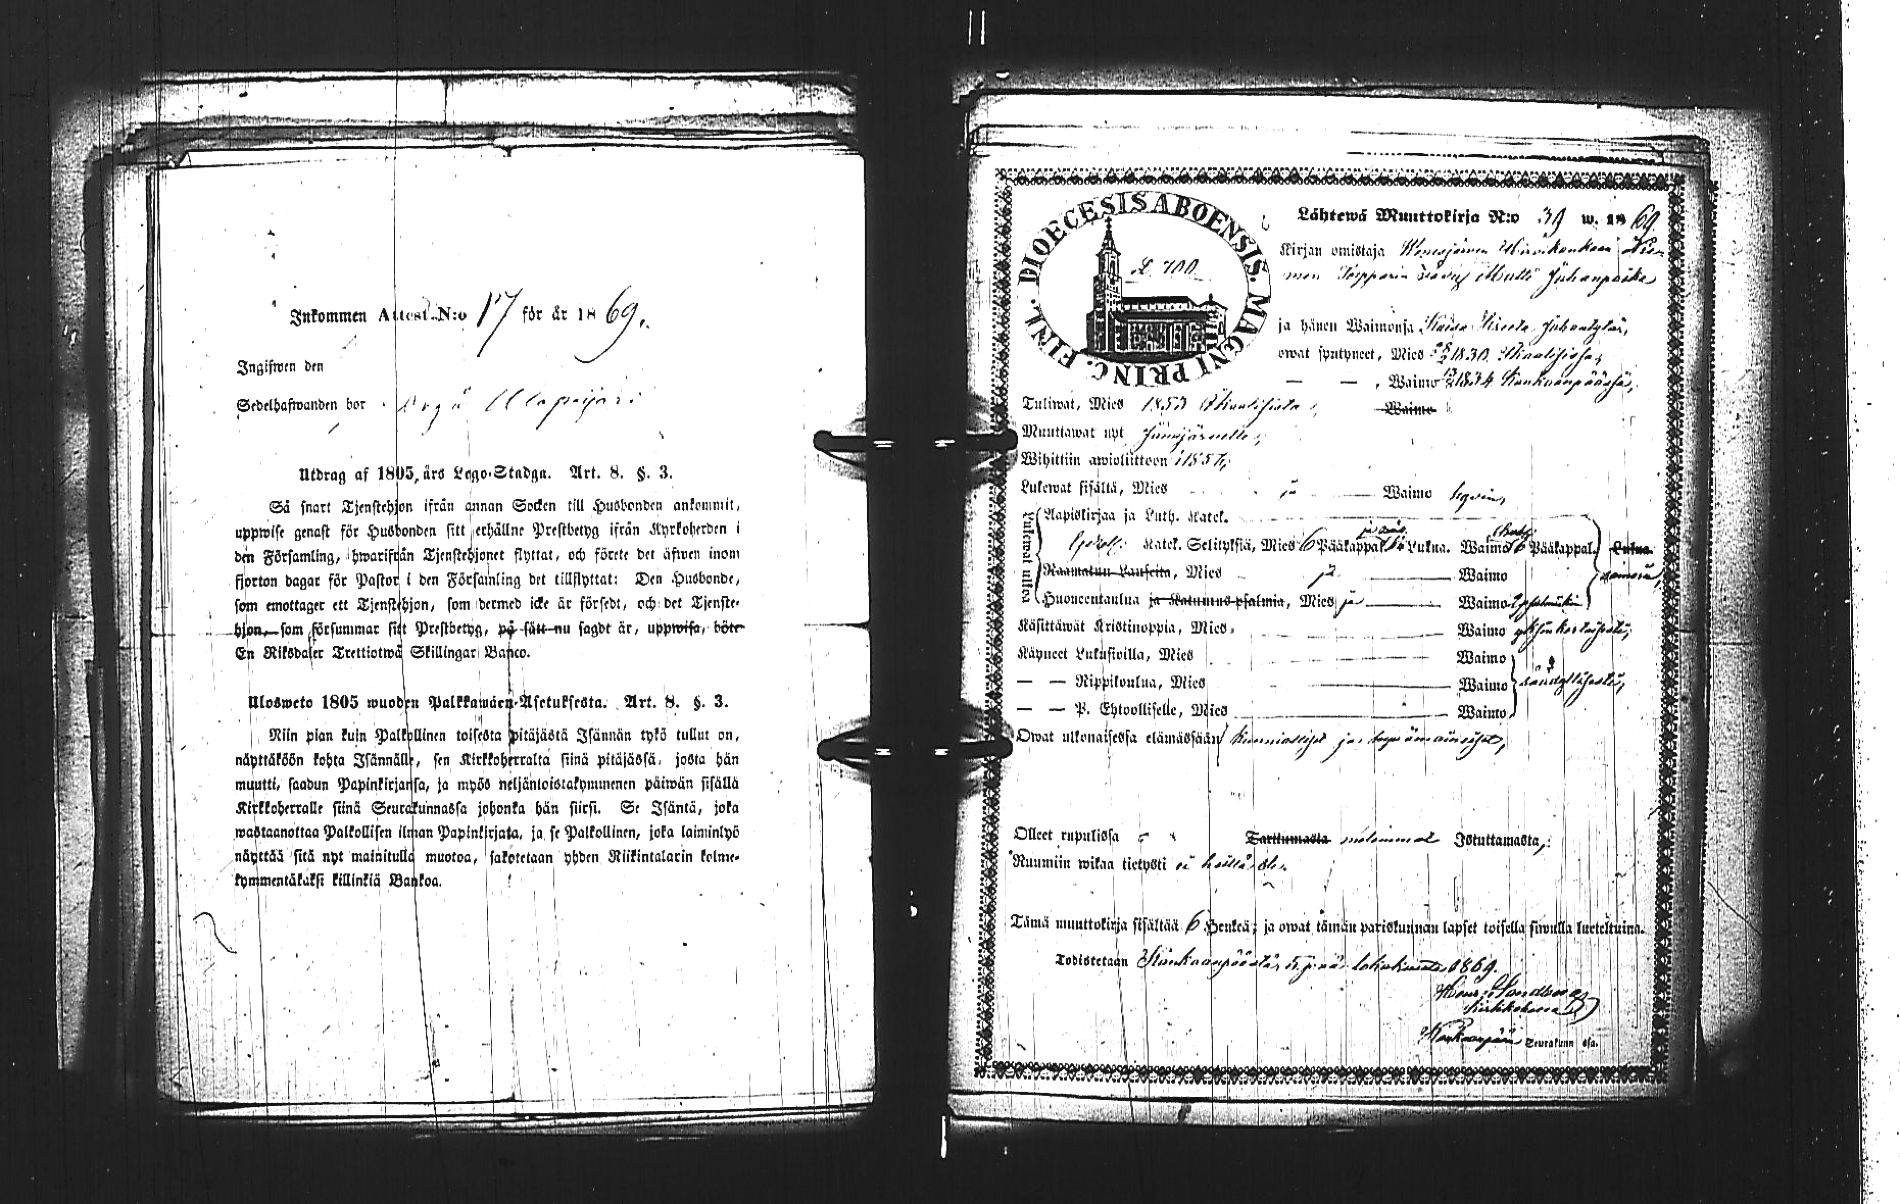 Inkommen Attest N:o 17 för år 1869.
Ingifwen den
Sedelhafwanden bor
Utdrag af 1805, års Lego-Stadga. Art. 8. §. 3.
Så snart Tjenstehjon ifrån annan Socken till Husbonden ankommit,
uppwise genast för Husbonden sitt erhållne Prestbetyg ifrån Kyrkoherden i
den Församling, hwarifrån Tjenstehjonet flyttat, och förete det äfwen inom
fjorton dagar för Pastor i den Församling det tillflyttat: Den Husbonde,
som emottager ett Tjenstehjon, som dermed icke är försedt, och det Tjenste-
hjon, som försummar sitt Prestbetyg, på sätt nu sagdt är, uppwisa, böte
En Riksdaler Trettiotwå Skillingar Banco.
Ulosweto 1805 wuoden Palkkawäen-Asetuksesta. Art. 8. §. 3.
Niin pian kuin Palkollinen toisesta pitäjästä Isännän tykö tullut on,
näyttäköön kohta Isännälle, sen Kirkkoherralta siinä pitäjässä, josta hän
muutti, saadun Papinkirjansa, ja myös neljäntoistakymmenen päiwän sisällä
Kirkkoherralle siinä Seurakunnassa johonka hän siirsi. Se Isäntä, joka
wastaanottaa Palkollisen ilman Papinkirjata, ja se Palkollinen, joka laiminlyö
näyttää sitä nyt mainitulla muotoa, sakotetaan yhden Riikintalarin kolme-
kymmentäkaksi killinkiä Bankoa.
DIOECESIS ABOENSIS. MAGNI PRINC. FINL.
700
Lähtewä Muuttokirja N:o 39 w. 1869.
Kirjan omistaja
Matti Juhanpoika
ja hänen Waimonsa Kaisa Juhantytär,
owat syntyneet, Mies 1830 Ikaalisissa,
— — , Waimo 1834 Kankaanpäässä,
Tuliwat, Mies 1853 Ikaalisista, Waimo
Muuttawat nyt Jämijärwelle,
Wihittiin awioliittoon 1857,
Lukewat sisältä, Mies ja Waimo hywin,
Lukewat ulkoa
Aapiskirjaa ja Luth. Katek.
Katek. Selityksiä, Mies 6 Pääkappal. Lukua. Waimo 6 Pääkappal. Lukua.
Raamatun Lauseita, Mies ja Waimo
Huoneentaulua ja Katumus psalmia, Mies ja Waimo
Käsittäwät Kristinoppia, Mies Waimo
Käyneet Lukusioilla, Mies Waimo
— — Rippikoulua, Mies Waimo
— — P. Ehtoolliselle, Mies Waimo
Owat ulkonaisessa elämässään
Olleet rupulissa Tarttumasta molemmat Istuttamasta,
Ruumiin wikaa tietysti ei heillä ole.
Tämä muuttokirja sisältää 6 Henkeä; ja owat tämän pariskunnan lapset toisella siwulla lueteltuina.
Todistetaan Kankaanpäästä lokakuuta 1869.
Sandberg
Kirkkoherra
Kankaanpään Seurakunn ssa.